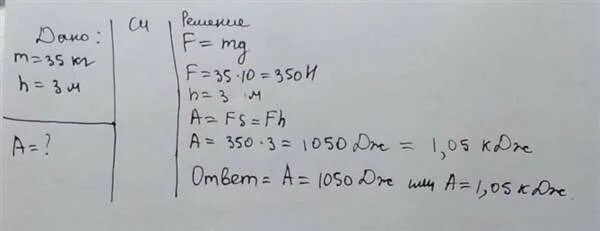 Дано:
m = 35 кг
h = 3 м
A = ?
СИ
Решение
F = mg
F = 35 · 10 = 350 Н
h = 3 м
A = Fs = Fh
A = 350 · 3 = 1050 Дж = 1,05 кДж
Ответ = A = 1050 Дж или A = 1,05 кДж.